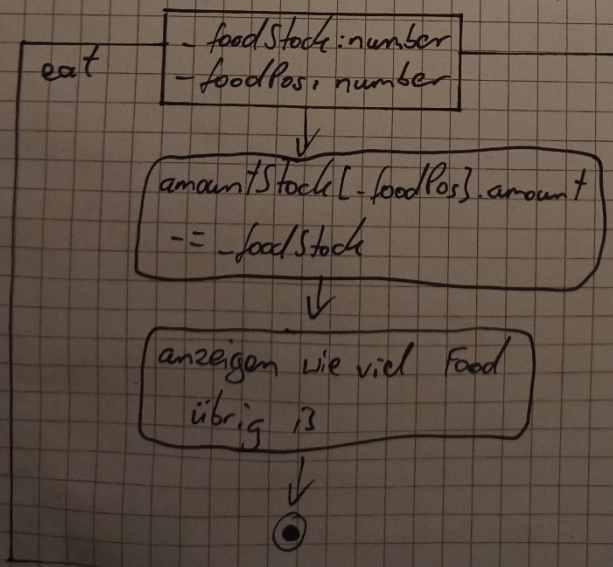 eat
_foodStock: number
_foodPos: number
amountStock[_foodPos].amount
-= _foodStock
anzeigen wie viel Food
übrig is